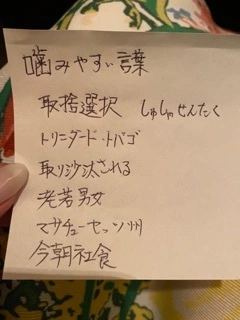 噛みやすい言葉
取捨選択 しゅしゃせんたく
トリニダード・トバゴ
取り沙汰される
老若男女
マサチューセッツ州
今朝社食